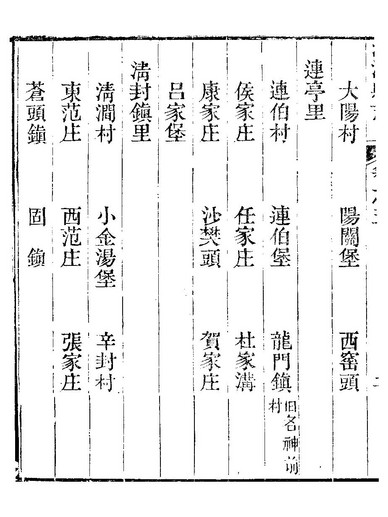 大陽村　陽關堡　西窰頭
連亭里
連伯村　連伯堡　龍門鎮旧名神前村
侯家庄　任家庄　杜家溝
康家庄　沙樊頭　賀家庄
呂家堡
清封鎮里
清澗村　小金湯堡　辛封村
東范庄　西范庄　張家庄
蒼頭鎮　固鎮